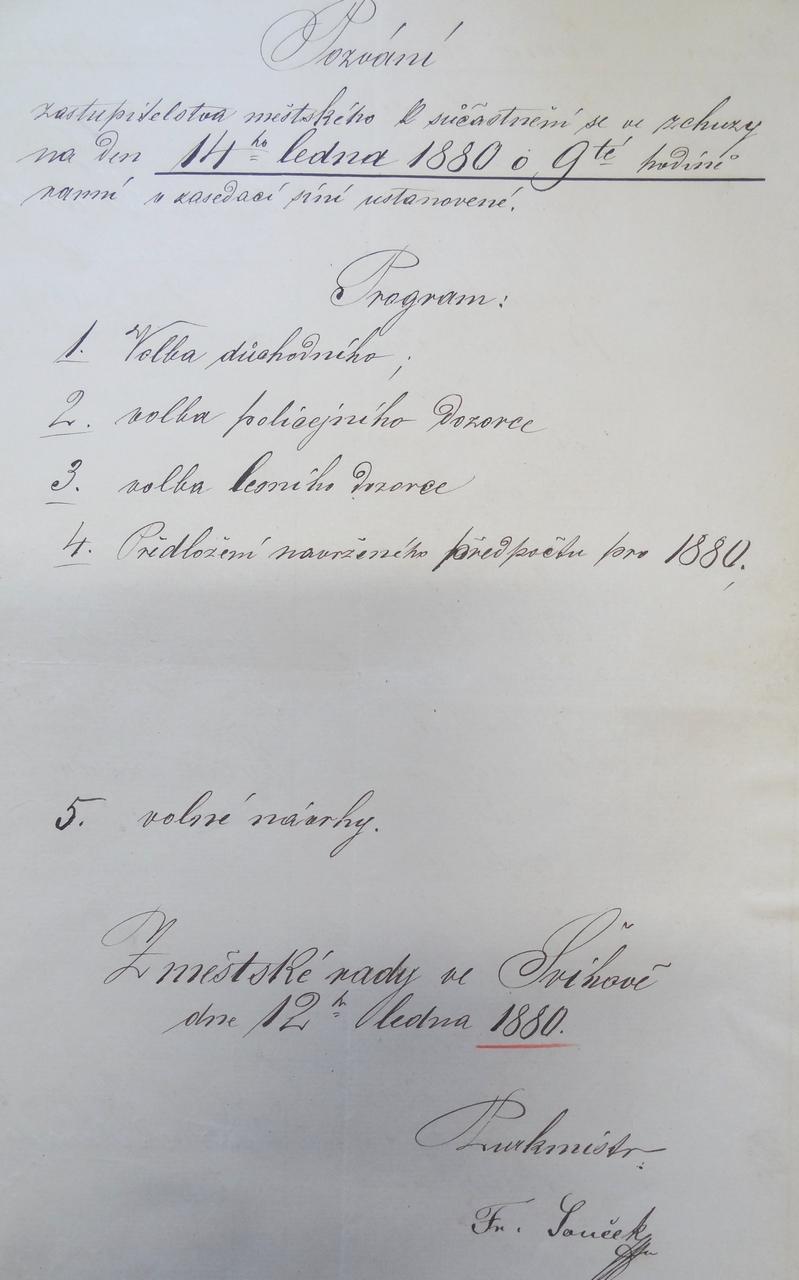 Pozvání
zastupitelstva městského k súčastnění se ve zchuzy
na den 14ho ledna 1880 o 9té hodině
ranní v zasedací síni ustanovené.
Program:
1. Volba důchodního;
2. volba policejního dozorce
3. volba lesního dozorce
4. Předložení navrženého předpočtu pro 1880.
5. volné návrhy.
Z městské rady ve Švihově
dne 12h ledna 1880.
Purkmistr:
Fr. Souček